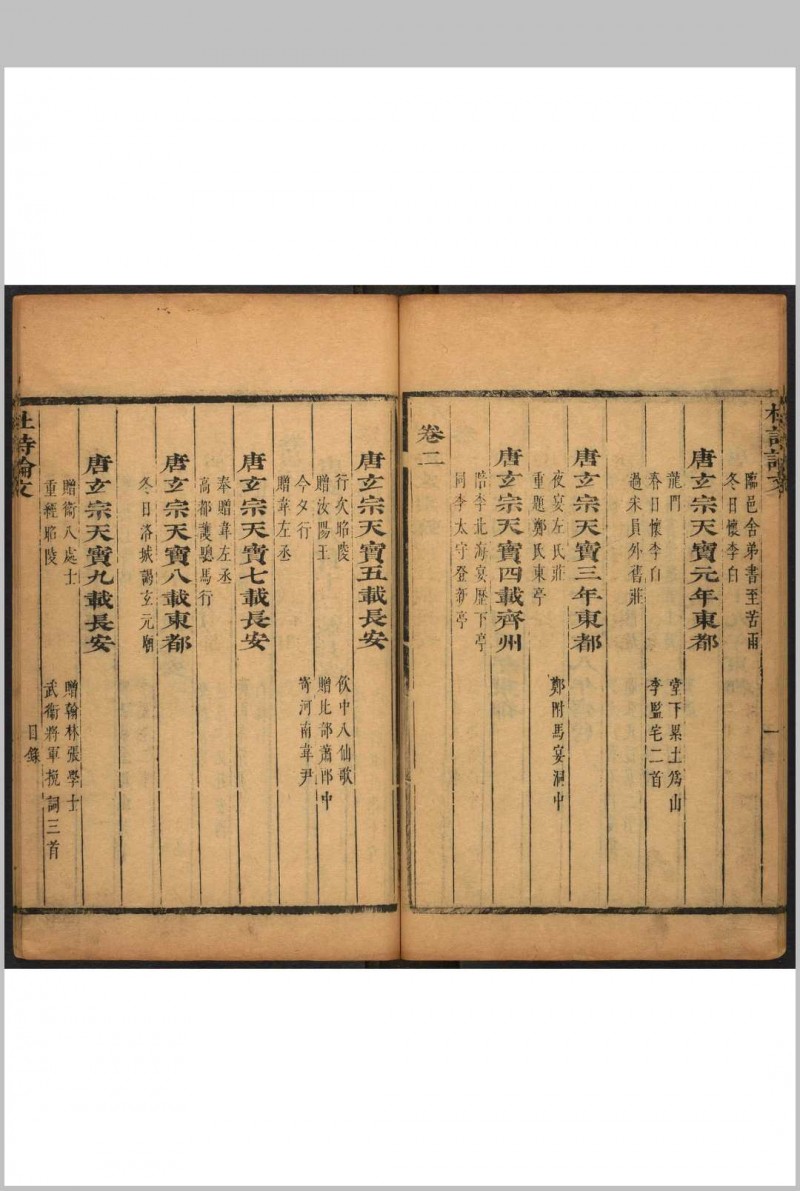 杜詩論文
一
臨邑舍弟書至苦雨
冬日懷李白
唐玄宗天寶元年東都
龍門
堂下累土為山
春日懷李白
李監宅二首
過宋員外舊莊
唐玄宗天寶三年東都
夜宴左氏莊
鄭附馬宴洞中
重題鄭氏東亭
唐玄宗天寶四載齊州
陪李北海宴歷下亭
同李太守登新亭
卷二
唐玄宗天寶五載長安
行次昭陵
飲中八仙歌
贈汝陽王
贈比部蕭郎中
今夕行
寄河南韋尹
贈韋左丞
唐玄宗天寶七載長安
奉贈韋左丞
高都護驄馬行
唐玄宗天寶八載東都
冬日洛城謁玄元廟
唐玄宗天寶九載長安
贈衛八處士
贈翰林張學士
重經昭陵
武衛將軍挽詞三首
杜詩論文
目錄